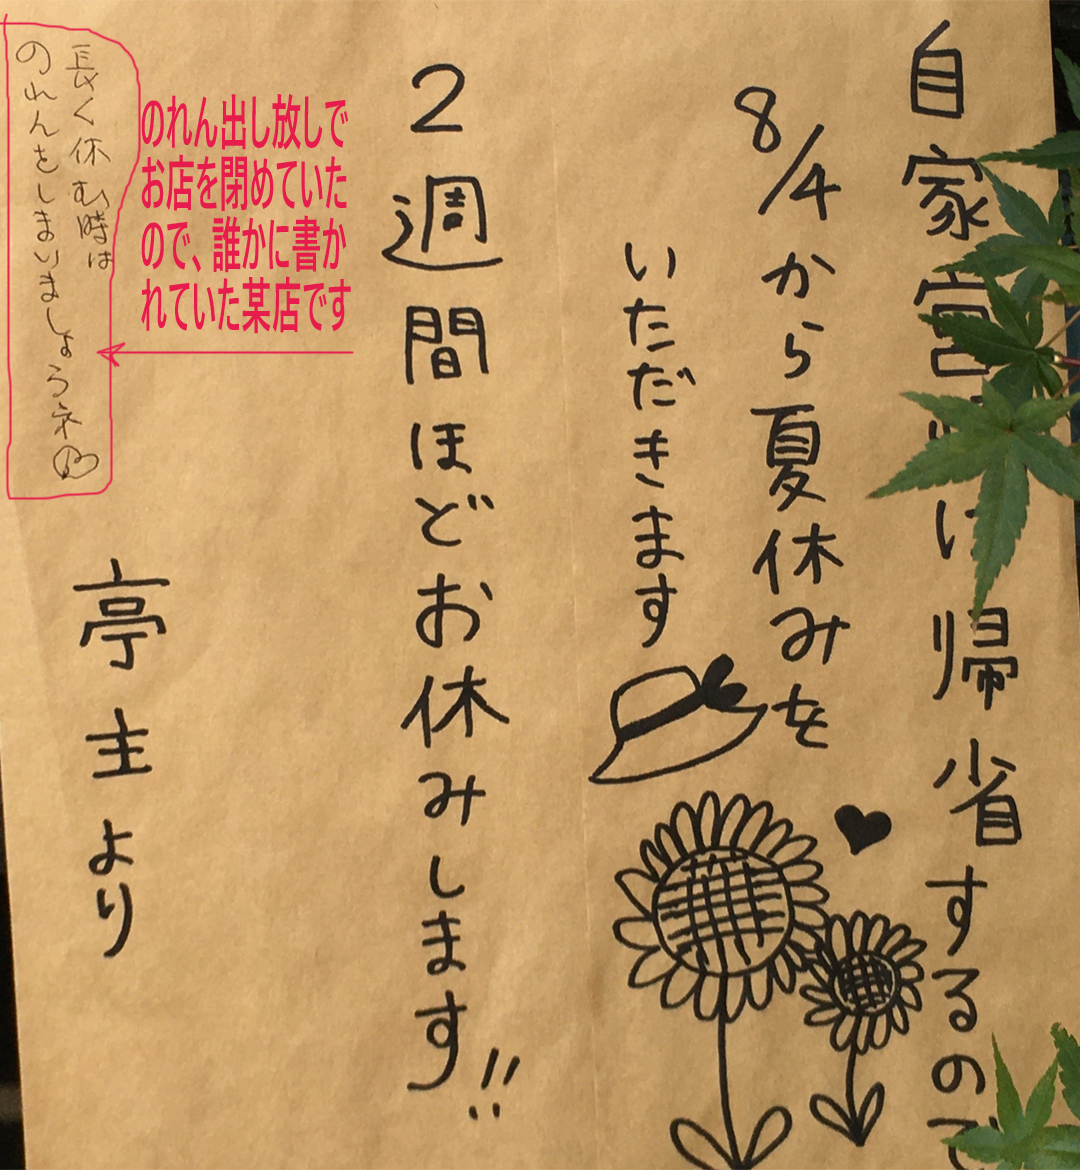 自家宮に帰省するので
8/4から夏休みを
いただきます
2週間ほどお休みします!!
亭主より
長く休む時は
のれんをしまいましょうネ
のれん出し放しで
お店を閉めていた
ので、誰かに書か
れていた某店です